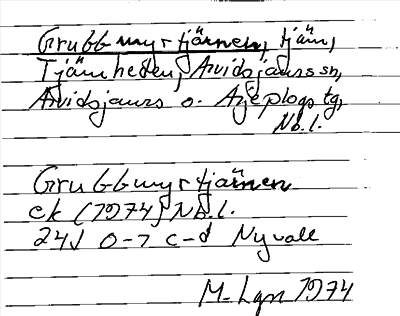 Grubbmyrtjärnen, tjärn,
Tjärnheden, Arvidsjaurs sn,
Arvidsjaurs o. Arjeplogs tg,
Nb.l.
Grubbmyrtjärnen
ek (1974) Nb.l.
24J 0-7 c-d Nyvall
M. Lgn 1974